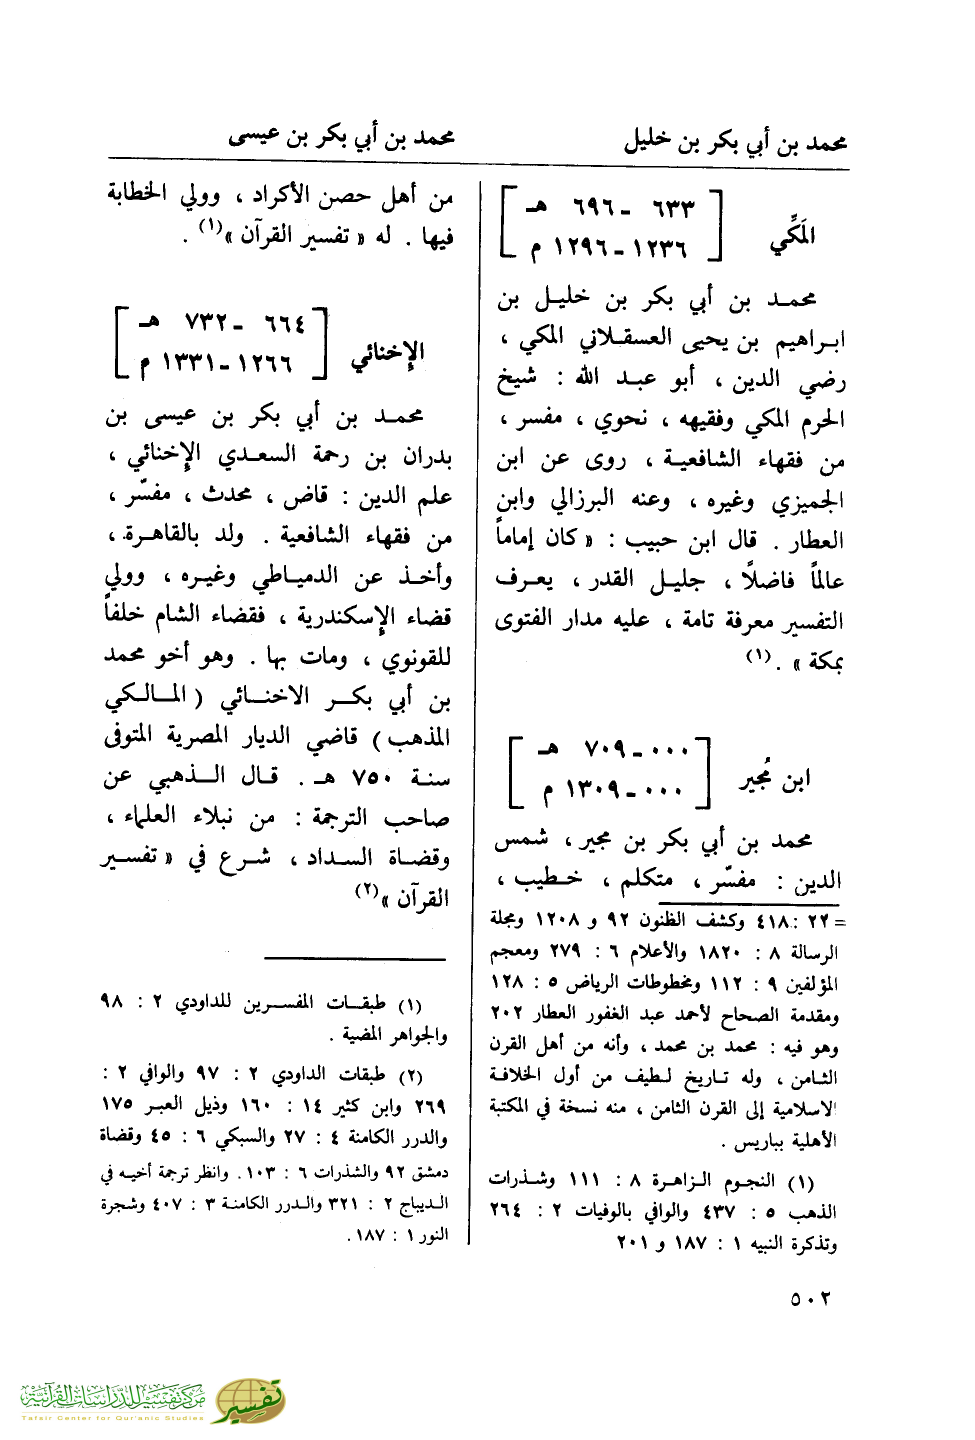 محمد بن أبي بكر بن خليل
محمد بن أبي بكر بن عيسى
المَكِّي
٦٣٣ - ٦٩٦ هـ
١٢٣٦ - ١٢٩٦ م
محمـد بن أبي بكر بن خليـل بن
ابـراهيم بن يحيى العسقـلاني المكي ،
رضي الدين ، أبو عبـد الله : شيخ
الحرم المكي وفقيهه ، نحوي ، مفسر ،
من فقهاء الشافعيـة ، روى عن ابن
الجميزي وغيره ، وعنه البرزالي وابن
العطار . قال ابن حبيب : « كان إماماً
عالماً فاضلاً ، جليـل القدر ، يعـرف
التفسير معرفة تامة ، عليه مدار الفتوى
بمكة » . (١)
ابن مُجير
٠٠٠ - ٧٠٩ هـ
٠٠٠ - ١٣٠٩ م
محمد بن أبي بكر بن مجير ، شمس
الدين : مفسّر ، متكلم ، خـطيب ،
من أهل حصن الأكراد ، وولي الخطابة
فيها . له « تفسير القرآن »(١) .
الإخنائي
٦٦٤ - ٧٣٢ هـ
١٢٦٦ - ١٣٣١ م
محمـد بن أبي بكر بن عيسى بن
بدران بن رحمة السعـدي الإخنائي ،
علم الدين : قاض ، محدث ، مفسّر ،
من فقهاء الشافعية . ولد بالقاهرة ،
وأخـذ عن الدميـاطي وغيـره ، وولي
قضاء الإسكندرية ، فقضاء الشام خلفاً
للقونوي ، ومات بها . وهو أخو محمد
بن أبي بكـر الاخنـائي ( المـالـكي
المذهب ) قاضي الديار المصرية المتوفى
سنـة ٧٥٠ هـ . قـال الـذهبي عن
صاحب الترجمة : من نبلاء العلماء ،
وقضـاة السـداد ، شـرع في « تفسـير
القرآن »(٢)
= ٢٢ : ٤١٨ وكشف الظنون ٩٢ و ١٢٠٨ ومجلة
الرسالة ٨ : ١٨٢٠ والأعلام ٦ : ٢٧٩ ومعجم
المؤلفين ٩ : ١١٢ ومخطوطات الرياض ٥ : ١٢٨
ومقدمة الصحاح لأحمد عبد الغفور العطار ٢٠٢
وهو فيه : محمد بن محمد ، وأنه من أهل القرن
الثـامن ، وله تـاريخ لـطيف من أول الخلافـة
الاسلامية إلى القرن الثامن ، منه نسخة في المكتبة
الأهلية بباريس .
(١) النجوم الـزاهـرة ٨ : ١١١ وشـذرات
الذهب ٥ : ٤٣٧ والوافي بالوفيات ٢ : ٢٦٤
وتذكرة النبيه ١ : ١٨٧ و ٢٠١
(١) طبقـات المفسـرين للداودي ٢ : ٩٨
والجواهر المضية .
(٢) طبقات الداودي ٢ : ٩٧ والوافي ٢ :
٢٦٩ وابن كثير ١٤ : ١٦٠ وذيل العبـر ١٧٥
والدرر الكامنة ٤ : ٢٧ والسبكي ٦ : ٤٥ وقضاة
دمشق ٩٢ والشذرات ٦ : ١٠٣ . وانظر ترجمة أخيـه في
الـديباج ٢ : ٣٢١ والـدرر الكامنـة ٣ : ٤٠٧ وشجرة
النور ١ : ١٨٧ .
٥٠٢
مركز تفسير للدراسات القرآنية
Tafsir Center for Qur'anic Studies
تفسير